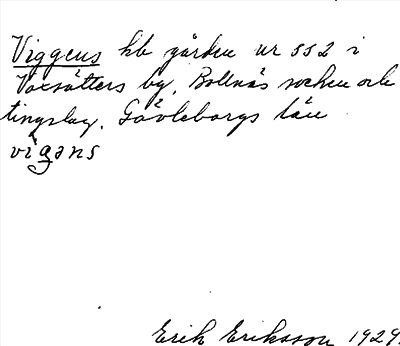 Viggens hb gården nr 552 i
Voxsätters by, Bollnäs socken och
tingslag. Gävleborgs län
vigans
Erik Eriksson 1929.